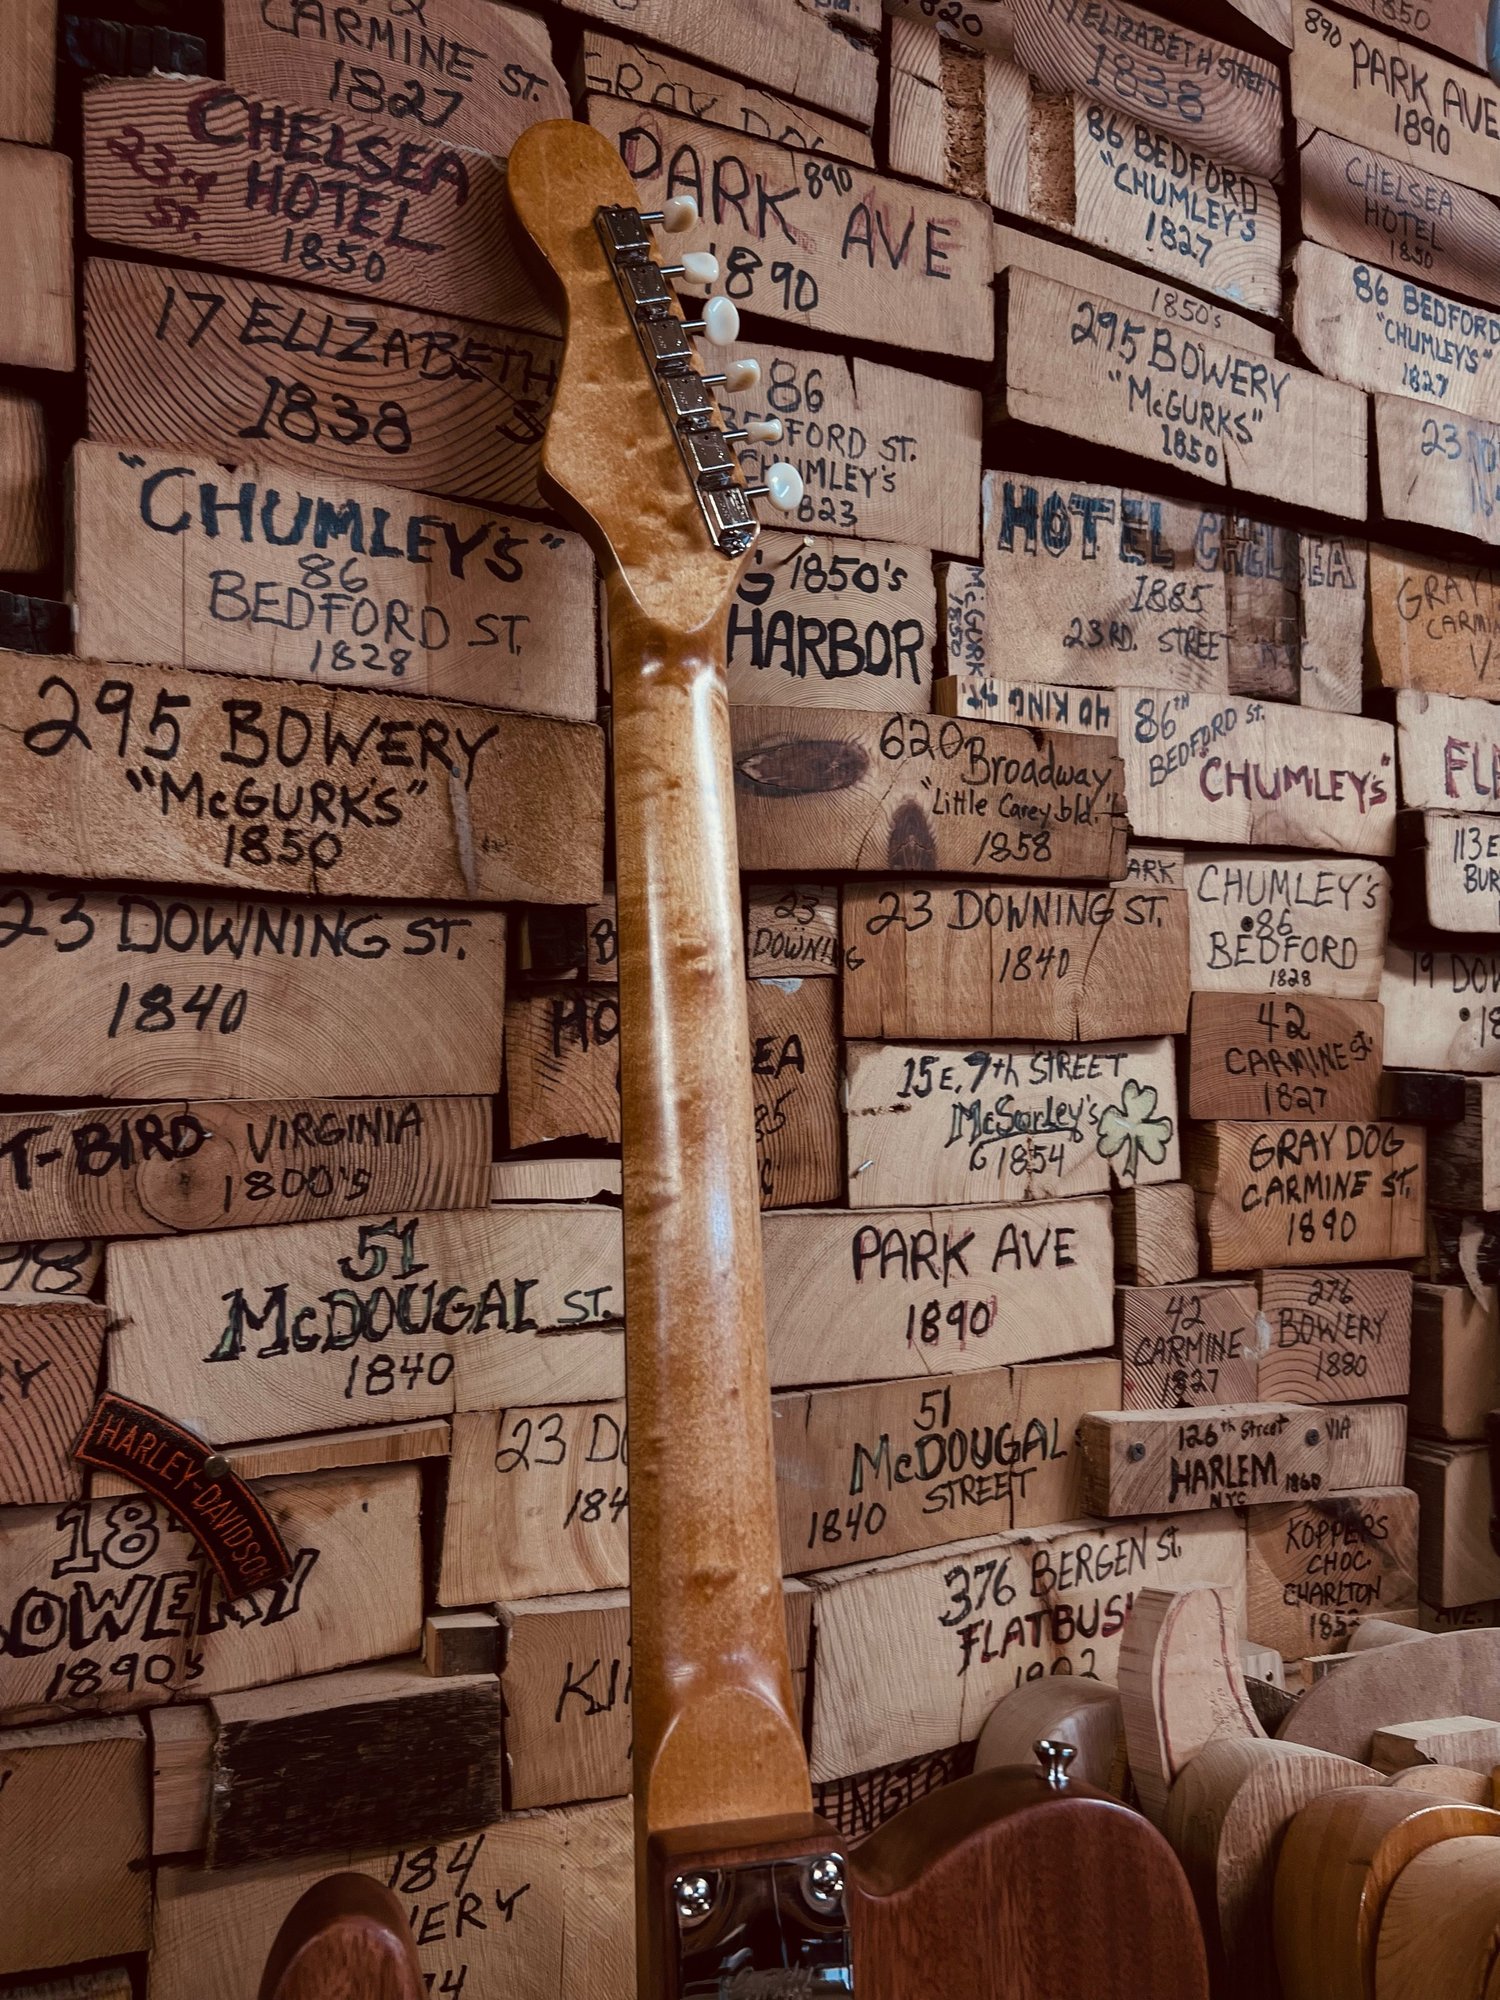 CARMINE ST.
1827
CHELSEA
HOTEL
23
ST.
1850
17 ELIZABETH
1838
"CHUMLEY'S"
86
BEDFORD ST.
1828
295 BOWERY
"McGURK'S"
1850
23 DOWNING ST.
1840
T-BIRD VIRGINIA
1800's
51
McDOUGAL ST.
1840
HARLEY-DAVIDSON
BOWERY
1890's
184
GRAY DOG
PARK AVE
890
1890
86
BEDFORD ST.
CHUMLEY'S
1823
1850's
HARBOR
620 Broadway
"Little Carey bld."
1858
23
DOWNING
23 DOWNING ST.
1840
15 E. 7th STREET
McSorley's
1854
PARK AVE
1890
51
McDOUGAL
STREET
1840
23
376 BERGEN St.
FLATBUSH
17 ELIZABETH STREET
1838
86 BEDFORD
"CHUMLEY'S
1827
1850's
295 BOWERY
"McGURKS"
1850
HOTEL CHELSEA
1885
23RD. STREET N.Y.C.
McGURK
1850
40 KING ST.
86TH
BEDFORD ST.
"CHUMLEY'S"
PARK
CHUMLEY'S
86
BEDFORD
1828
42
CARMINE St.
1827
GRAY DOG
CARMINE ST.
1890
42
CARMINE
1827
276
BOWERY
1880
126th Street VIA
HARLEM 1860
NYC
KOPPERS
CHOC.
CHARLTON
1852
890
PARK AVE
1890
CHELSEA
HOTEL
1850
86 BEDFORD
"CHUMLEY'S"
1827
23
GRAY
113 E